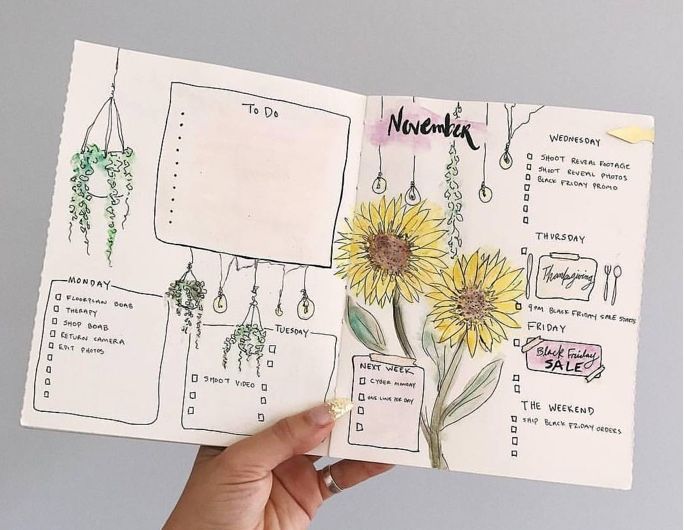 To Do
MONDAY
FLOORPLAN BOAB
THERAPY
SHOP BOAB
RETURN CAMERA
EDIT PHOTOS
TUESDAY
SHOOT VIDEO
November
NEXT WEEK
CYBER MONDAY
ONE LINE PER DAY
WEDNESDAY
SHOOT REVEAL FOOTAGE
SHOOT REVEAL PHOTOS
BLACK FRIDAY PROMO
THURSDAY
Thanksgiving
9PM BLACK FRIDAY SALE STARTS
FRIDAY
Black Friday
SALE
THE WEEKEND
SHIP BLACK FRIDAY ORDERS